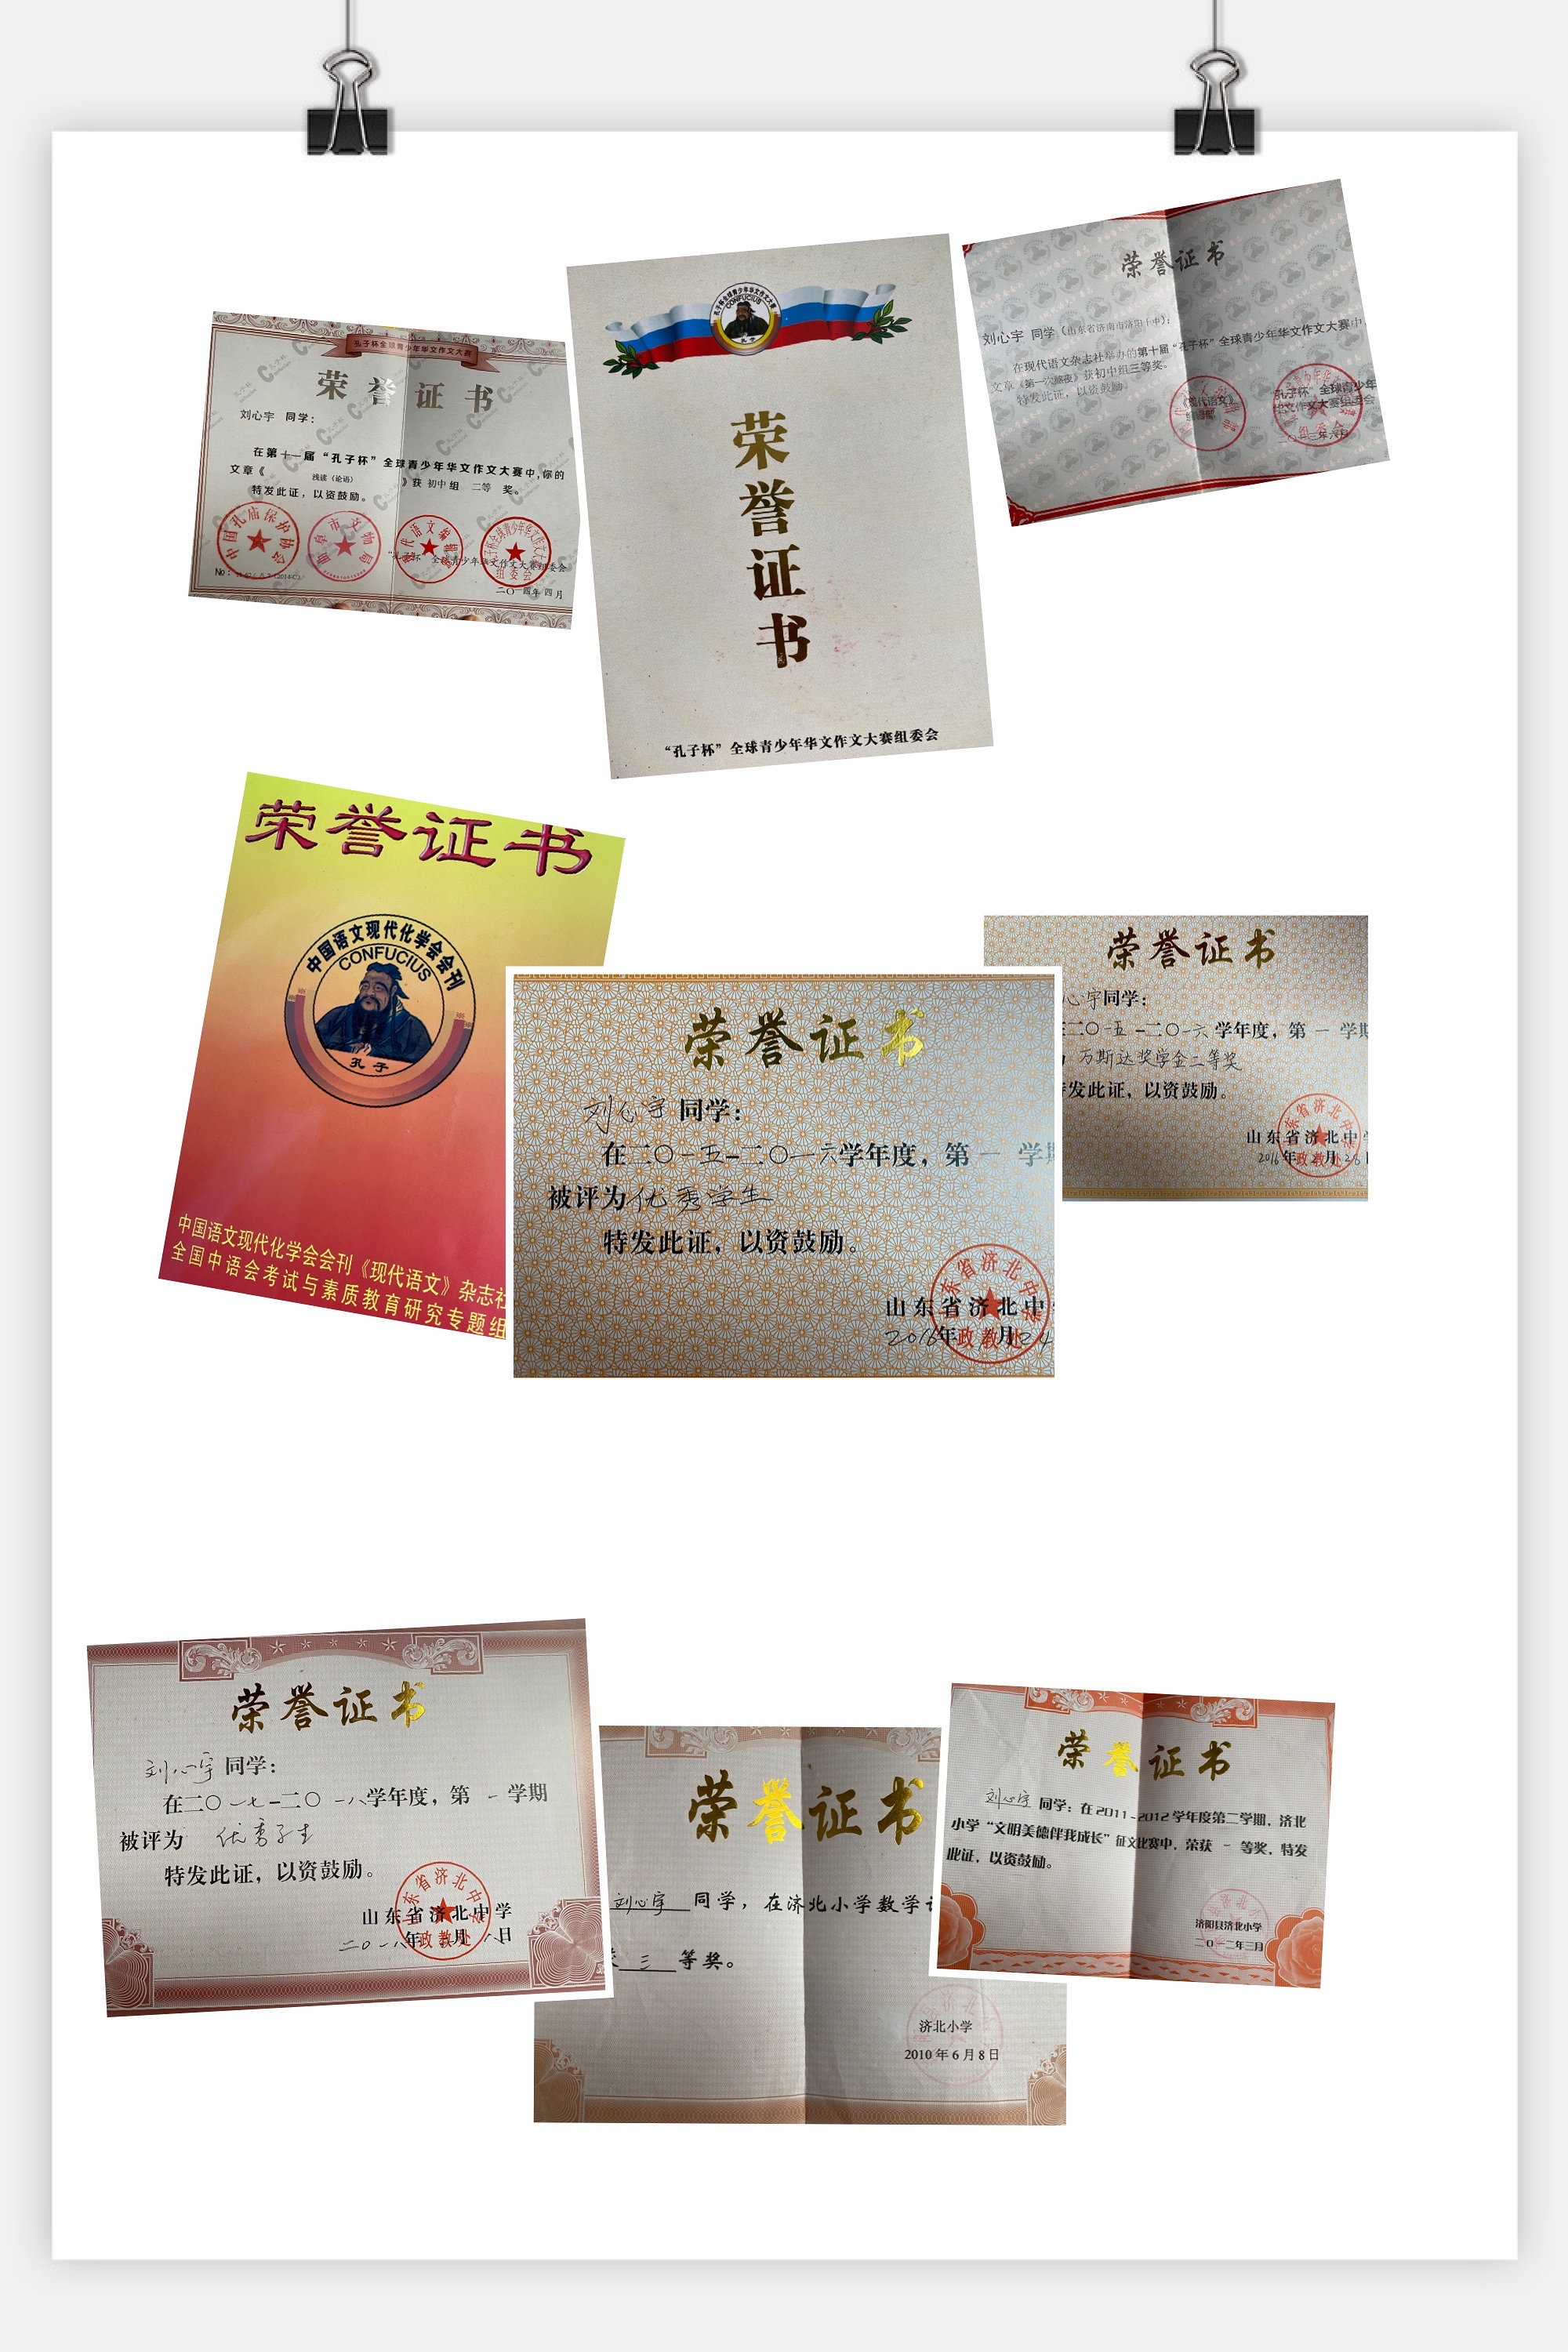 孔子杯全球青少年华文作文大赛
荣誉证书
刘心宇 同学:
在第十一届“孔子杯”全球青少年华文作文大赛中,你的
文章《浅读《论语》》获 初中组 二等 奖。
特发此证,以资鼓励。
中国孔庙保护协会
曲阜市文物局
“孔子杯”全球青少年华文作文大赛组委会
二〇一四年四月
孔子杯全球青少年华文作文大赛
CONFUCIUS
孔子
荣誉证书
“孔子杯”全球青少年华文作文大赛组委会
荣誉证书
刘心宇 同学(山东省济南市济阳十中):
在现代语文杂志社举办的第十届“孔子杯”全球青少年华文作文大赛中,
获初中组三等奖。
特发此证,以资鼓励。
《现代语文》
编辑部
“孔子杯”全球青少年
华文作文大赛组委会
二〇一三年六月
荣誉证书
中国语文现代化学会会刊
CONFUCIUS
孔子
中国语文现代化学会会刊《现代语文》杂志社
全国中语会考试与素质教育研究专题组
荣誉证书
刘心宇同学:
在二〇一五-二〇一六学年度,第一学期
被评为优秀学生
特发此证,以资鼓励。
山东省济北中学
政教处
荣誉证书
心宇同学:
二〇一五-二〇一六学年度,第一学期
万斯达奖学金二等奖
特发此证,以资鼓励。
山东省济北中学
政教处
荣誉证书
刘心宇同学:
在二〇一七-二〇一八学年度,第一学期
被评为 优秀学生
特发此证,以资鼓励。
山东省济北中学
政教处
荣誉证书
刘心宇 同学,在济北小学数学
三 等奖。
济北小学
2010年6月8日
荣誉证书
刘心宇 同学:在2011-2012学年度第二学期,济北
小学“文明美德伴我成长”征文比赛中,荣获 一 等奖,特发
此证,以资鼓励。
济阳县济北小学
二〇一二年三月